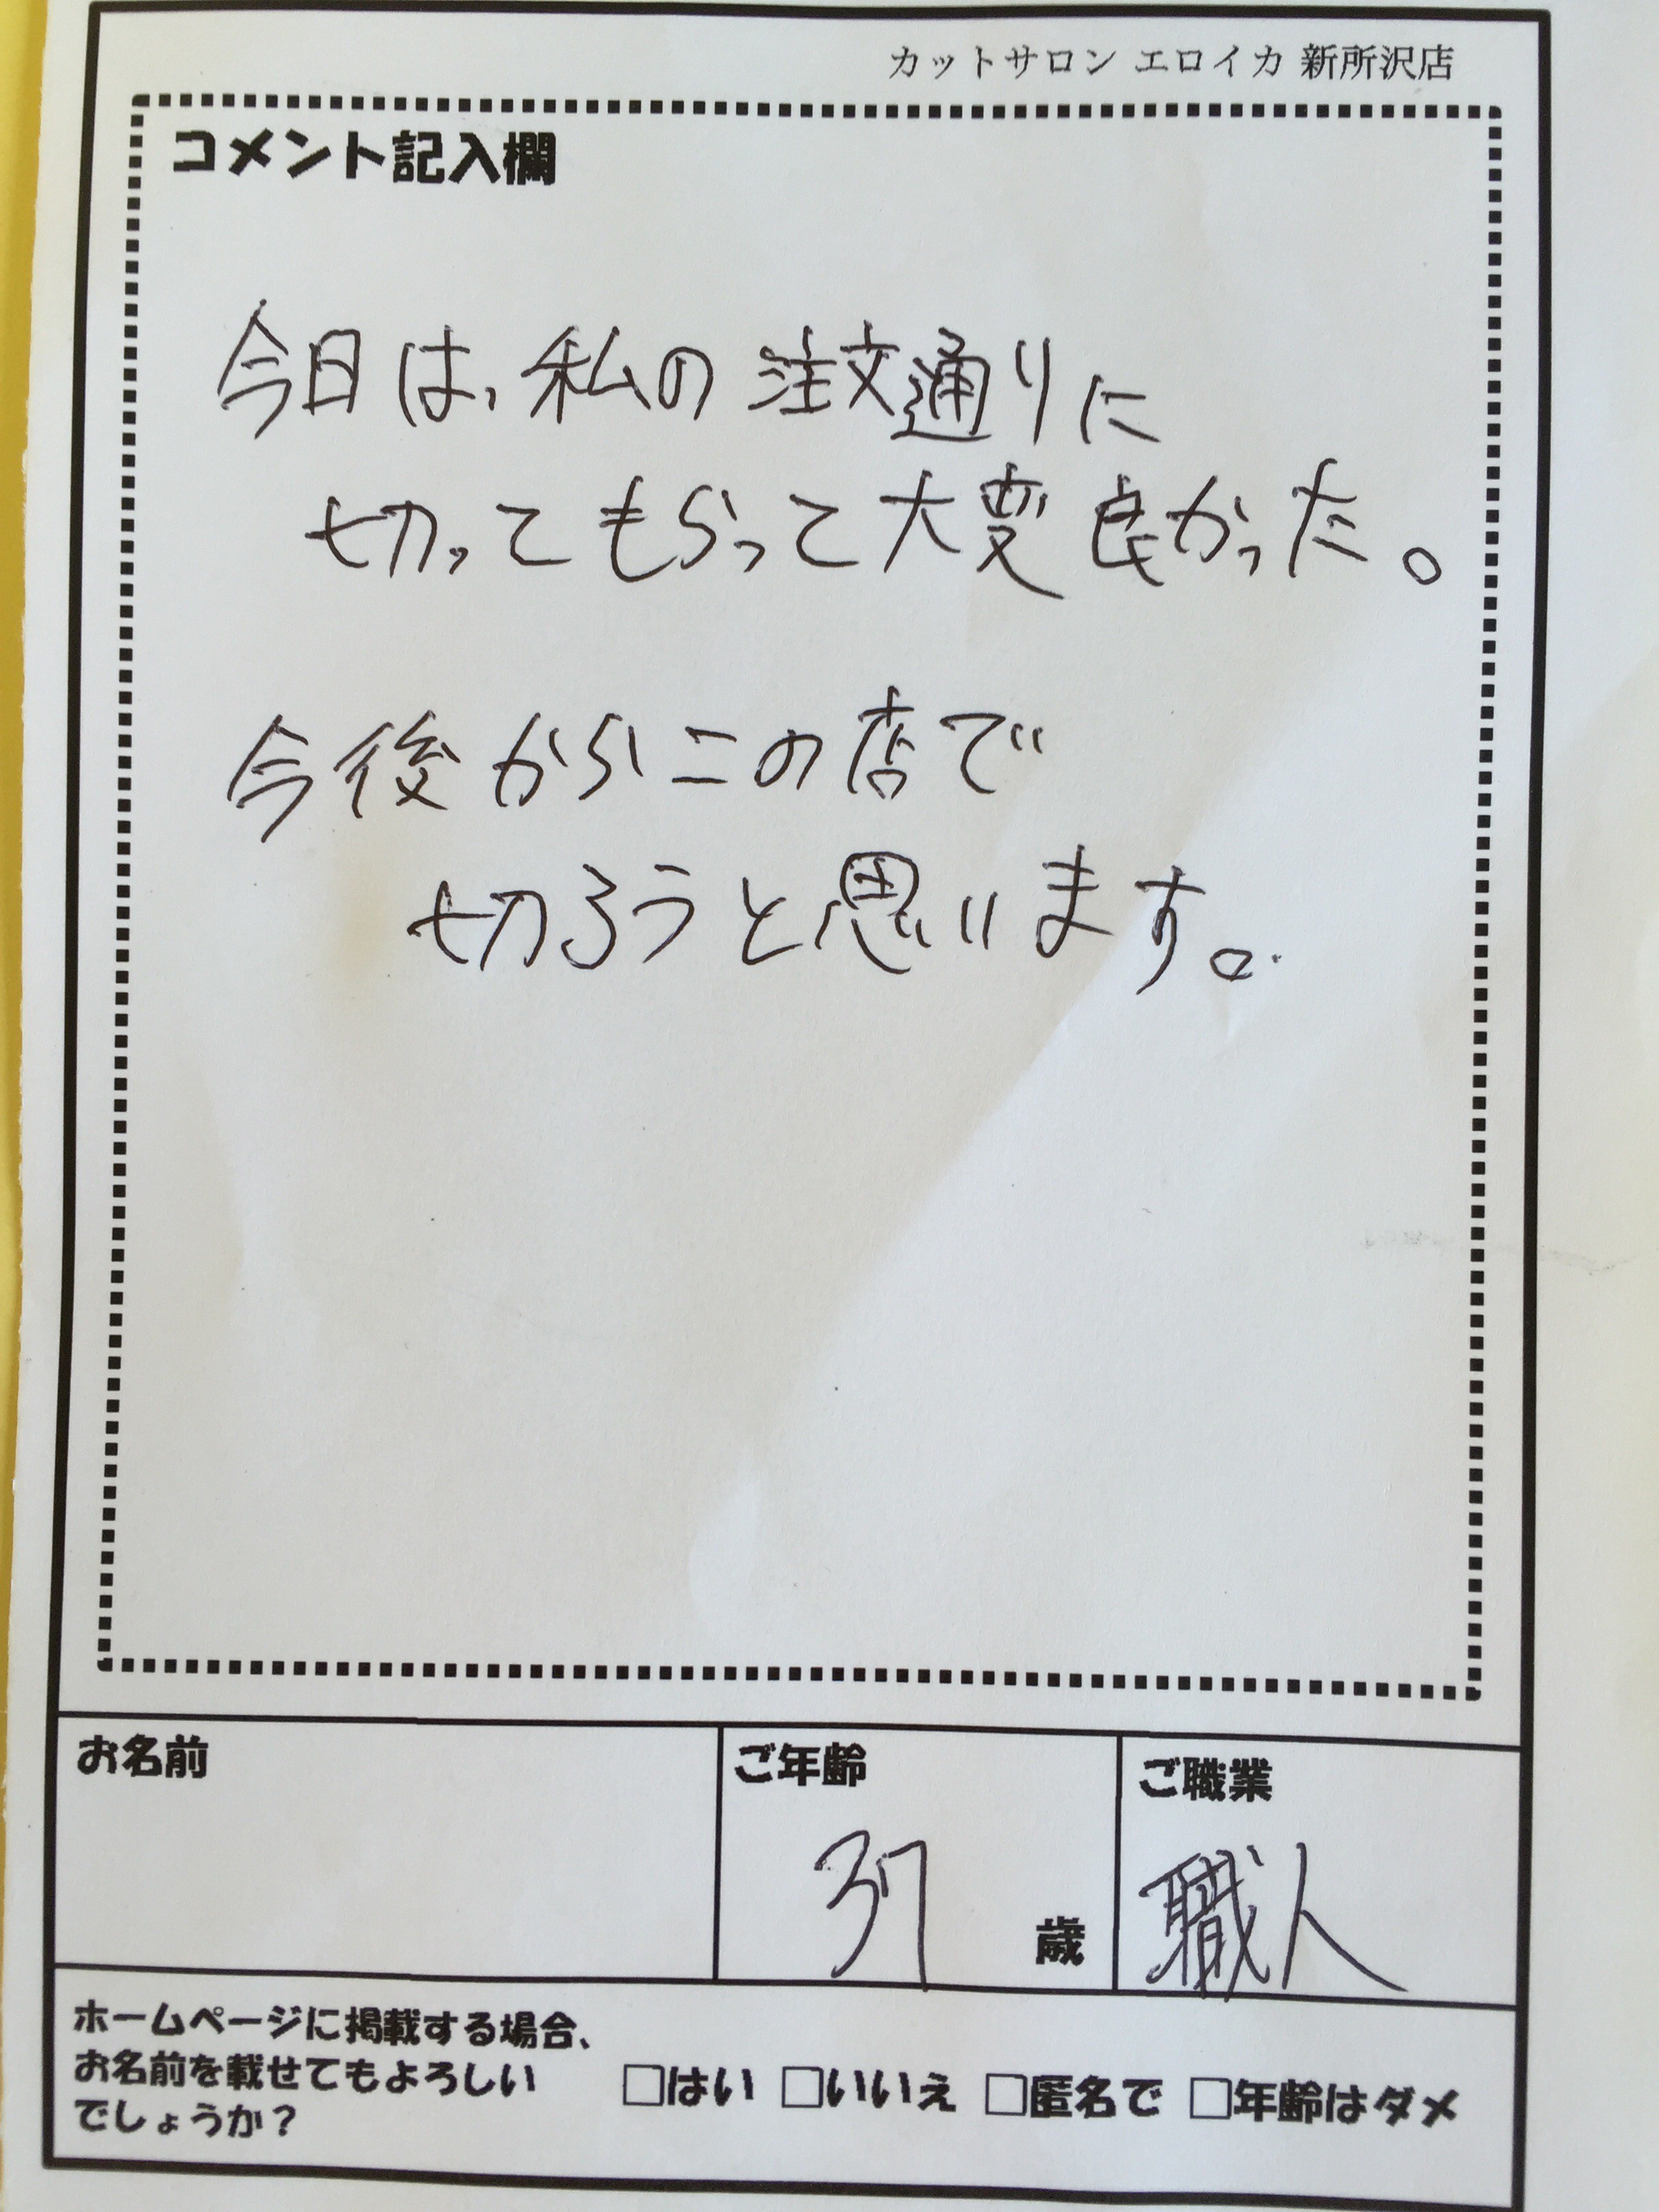 カットサロン エロイカ 新所沢店
コメント記入欄
今日は、私の注文通りに
切ってもらって大変良かった。
今後からこの店で
切ろうと思います。
お名前
ご年齢
ご職業
37 歳
職人
ホームページに掲載する場合、
お名前を載せてもよろしい
でしょうか？
□はい □いいえ □匿名で □年齢はダメ